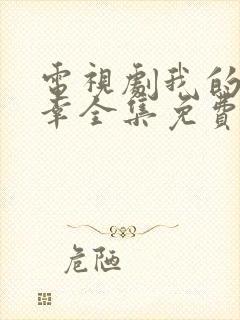 電視劇我的
幸全集免費
危陋